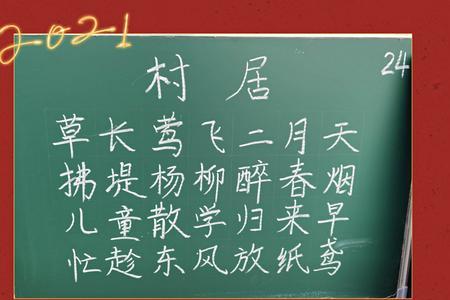 2021
24
村居
草长莺飞二月天
拂堤杨柳醉春烟
儿童散学归来早
忙趁东风放纸鸢